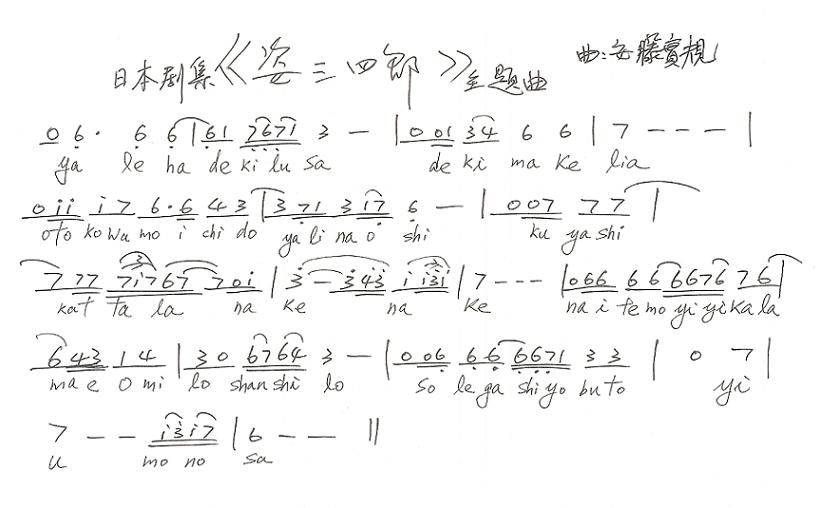 日本剧集《姿三四郎》主题曲 曲:安藤實規
0 6· 6 6 | 61 7671 3 – | 0 01 34 6 6 | 7 - - - |
ya le ha de ki lu sa de ki ma ke lia
0 i i i 7 6·6 4 3 | 3 71 3 i7 6 – | 0 07 7 7 |
oto ko wa mo i chi do ya li na o shi ku ya shi
7 77 7i767 70i | 3 – 343 i i3i | 7 - - - | 066 6 6 6676 76 |
kat ta la na ke na ke na i te mo yi yi ka la
643 14 | 30 6764 3 – | 006 66 6671 33 | 0 7 |
ma e o mi lo shan shi lo so le ga shi yo bu to yi
7 – – i3i7 | 6 – – ||
u mo no sa